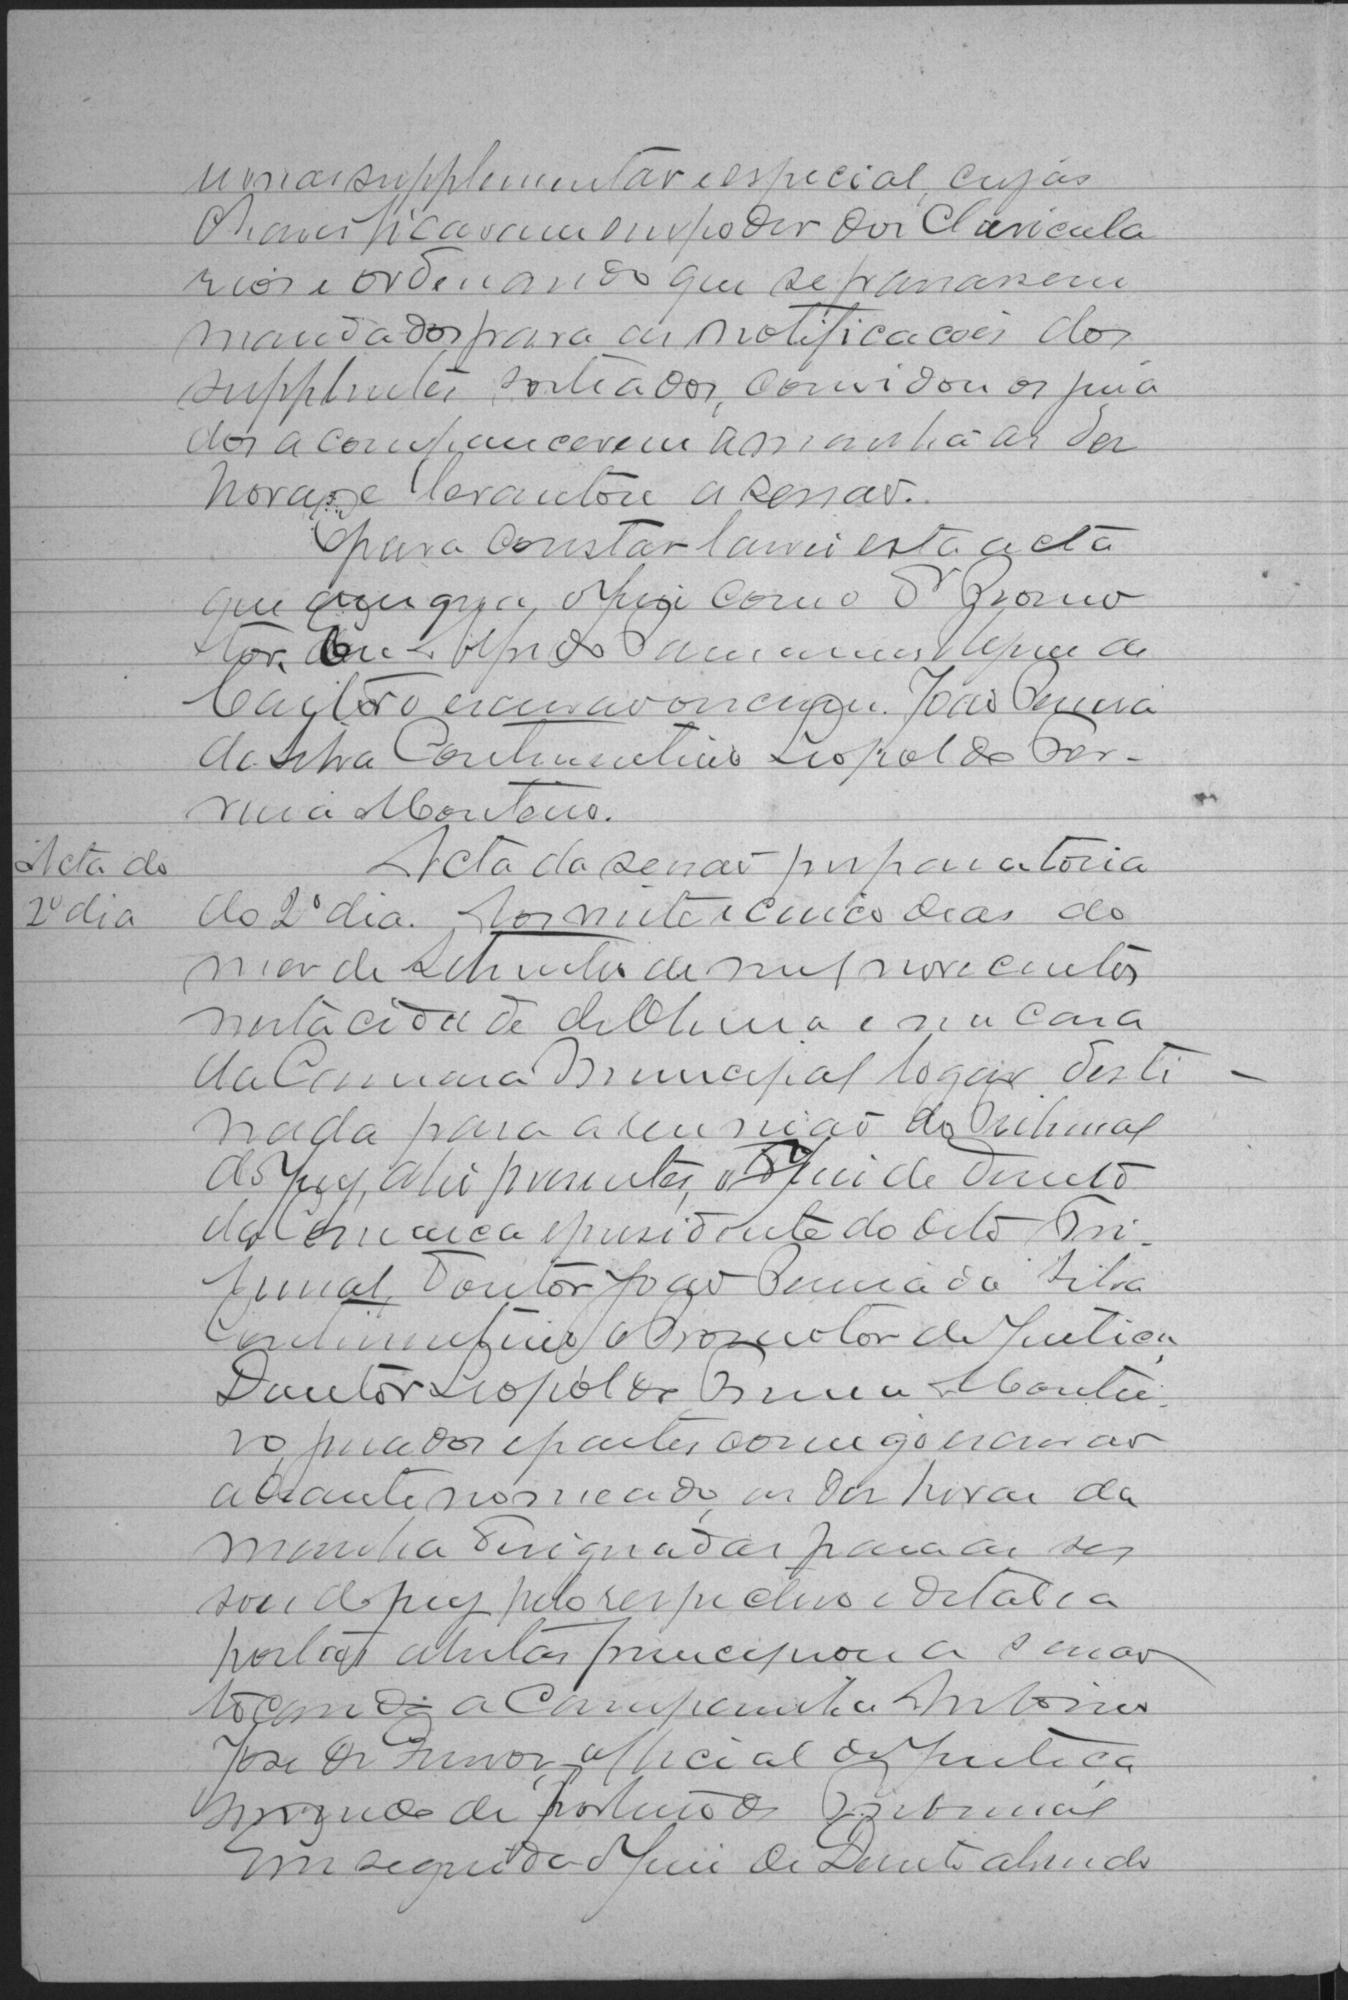 urnas supplementar e especial, cujas
chaves ficaram em poder dos Clavicula
rios e ordenando que se passassem
mandados para as notificacoes dos
supplentes sorteados, convidou os jura
dos a comparecerem amanhã as dez
horas e levantou a sessao.
E para constar lavrei esta acta
que assigna o Juiz com o Dr Promo
tor. Eu
escrivão escrevi. João Pereira
da Silva Continentino Leopoldo Fer-
reira Monteiro.
Acta do
2º dia
Acta da sessao preparatoria
do 2º dia. Aos vinte e cinco dias do
mez de Setembro de mil novecentos
nesta cidade de Oliveira e na casa
da Camara Municipal logar desti-
nada para a reuniao do Tribunal
do Jury, ahi presentes, o Dr Juiz de Direito
da Comarca e presidente do dito Tri-
bunal, Doutor Joao Pereira da Silva
Continentino, o Promotor de Justica,
Doutor Leopoldo Ferreira Montei-
ro, jurados e partes comigo escrivao
adiante nomeado, as dez horas da
manha designadas para as ses
soes do jury pelo respectivo edital e a
portas abertas principiou a sessao
tocando a Campainha Antonio
José de official de Justiça
servindo de porteiro do Tribunal
Em seguida o Juiz de Direito abrindo